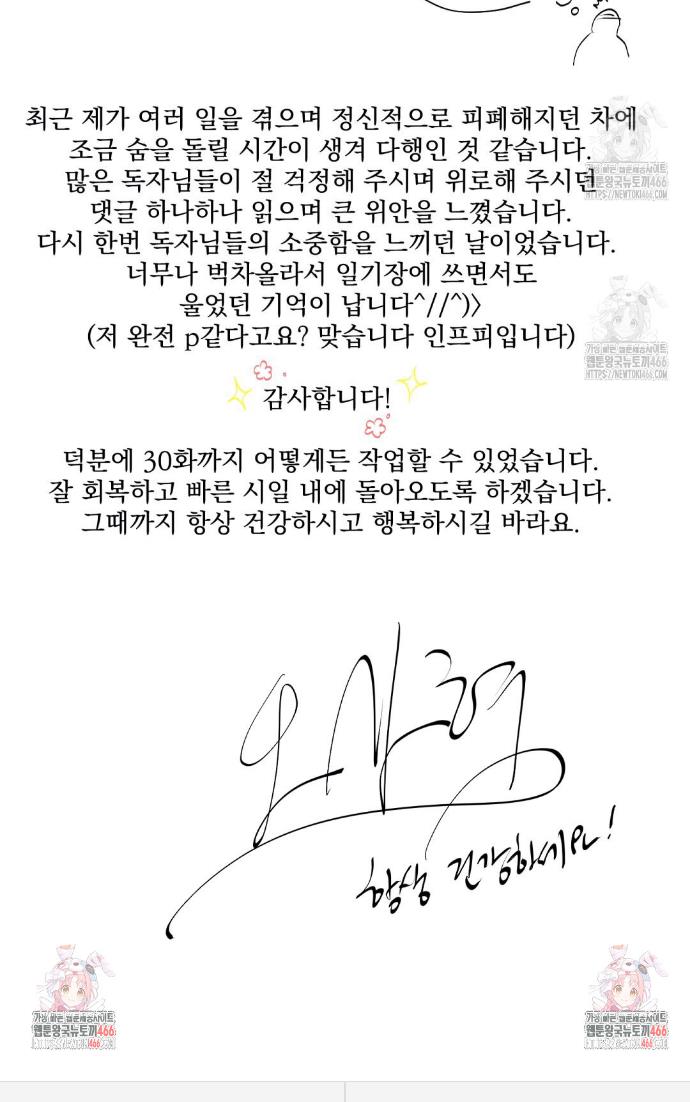 최근 제가 여러 일을 겪으며 정신적으로 피폐해지던 차에
조금 숨을 돌릴 시간이 생겨 다행인 것 같습니다.
많은 독자님들이 절 걱정해 주시며 위로해 주시던
댓글 하나하나 읽으며 큰 위안을 느꼈습니다.
다시 한번 독자님들의 소중함을 느끼던 날이었습니다.
너무나 벅차올라서 일기장에 쓰면서도
울었던 기억이 납니다^//^)>
(저 완전 p같다고요? 맞습니다 인프피입니다)
감사합니다!
덕분에 30화까지 어떻게든 작업할 수 있었습니다.
잘 회복하고 빠른 시일 내에 돌아오도록 하겠습니다.
그때까지 항상 건강하시고 행복하시길 바라요.
오사혁
항상 건강하세요!
가장 빠른 웹툰제공사이트
웹툰왕국뉴토끼466
HTTPS://NEWTOKI466
가장 빠른 웹툰제공사이트
웹툰왕국뉴토끼466
HTTPS://NEWTOKI466
가장 빠른 웹툰제공사이트
웹툰왕국뉴토끼466
가장 빠른 웹툰제공사이트
웹툰왕국뉴토끼466